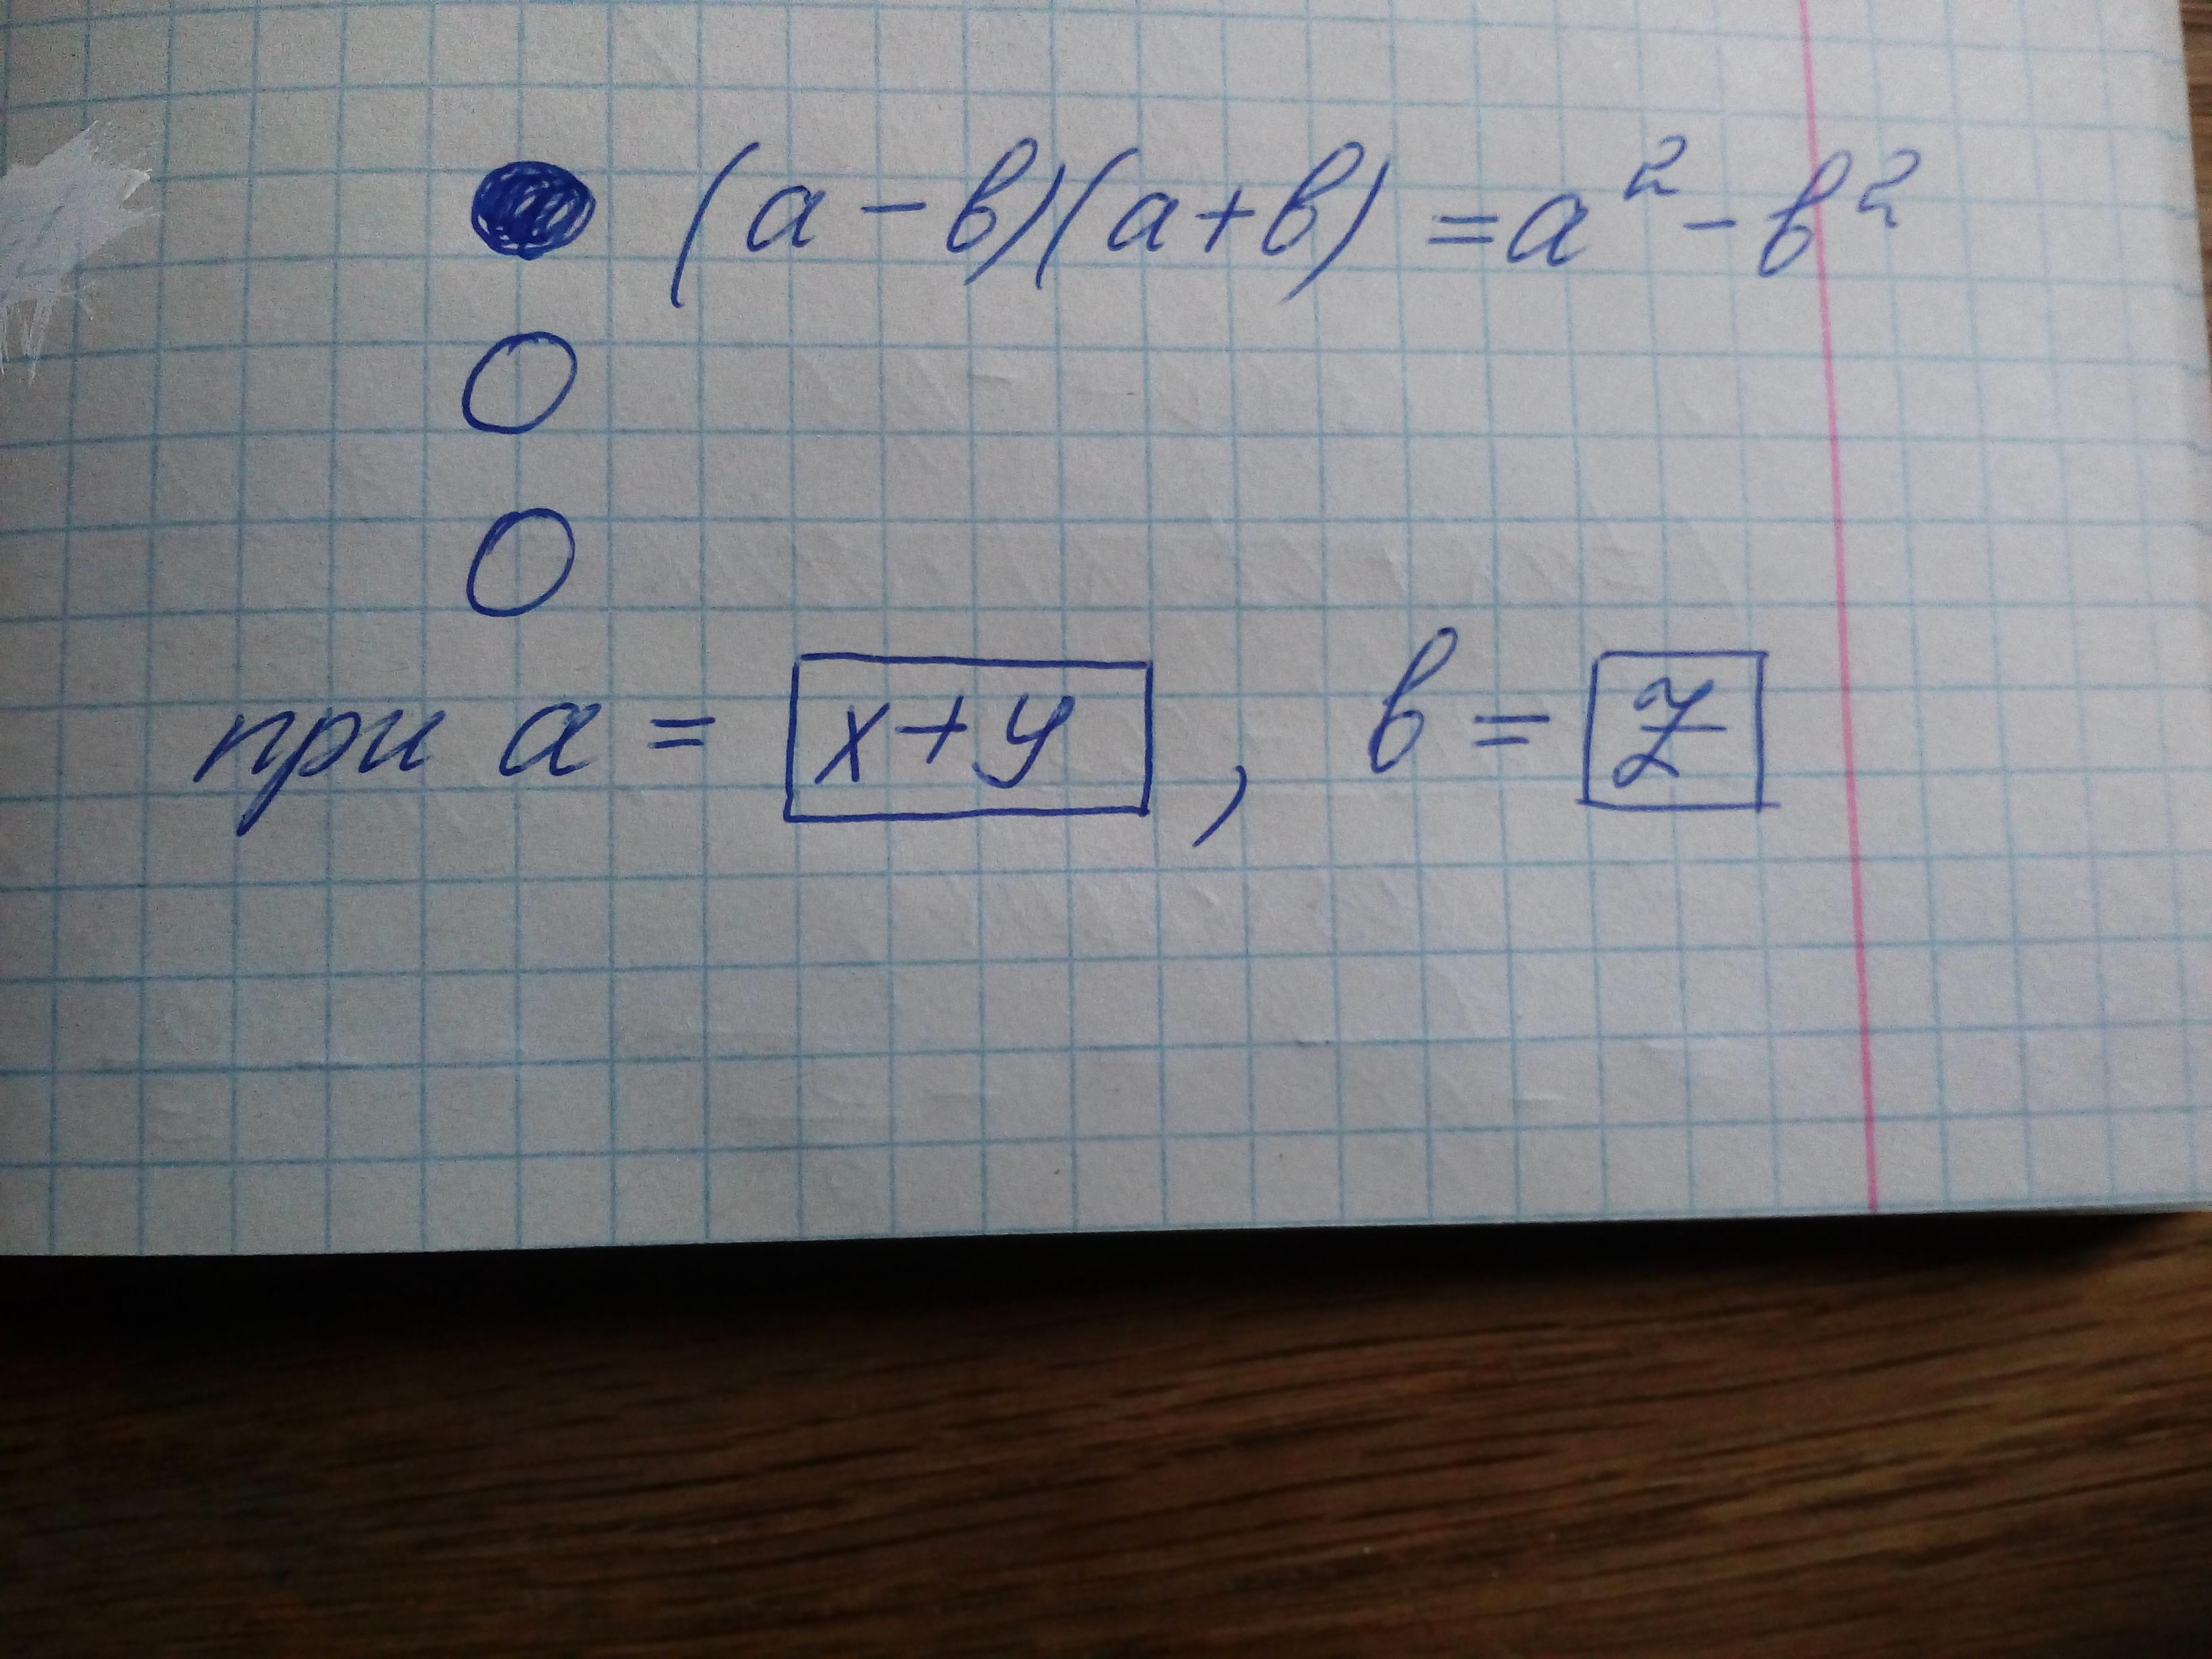 (a - b)(a + b) = a² - b²
при a = x + y , b = z